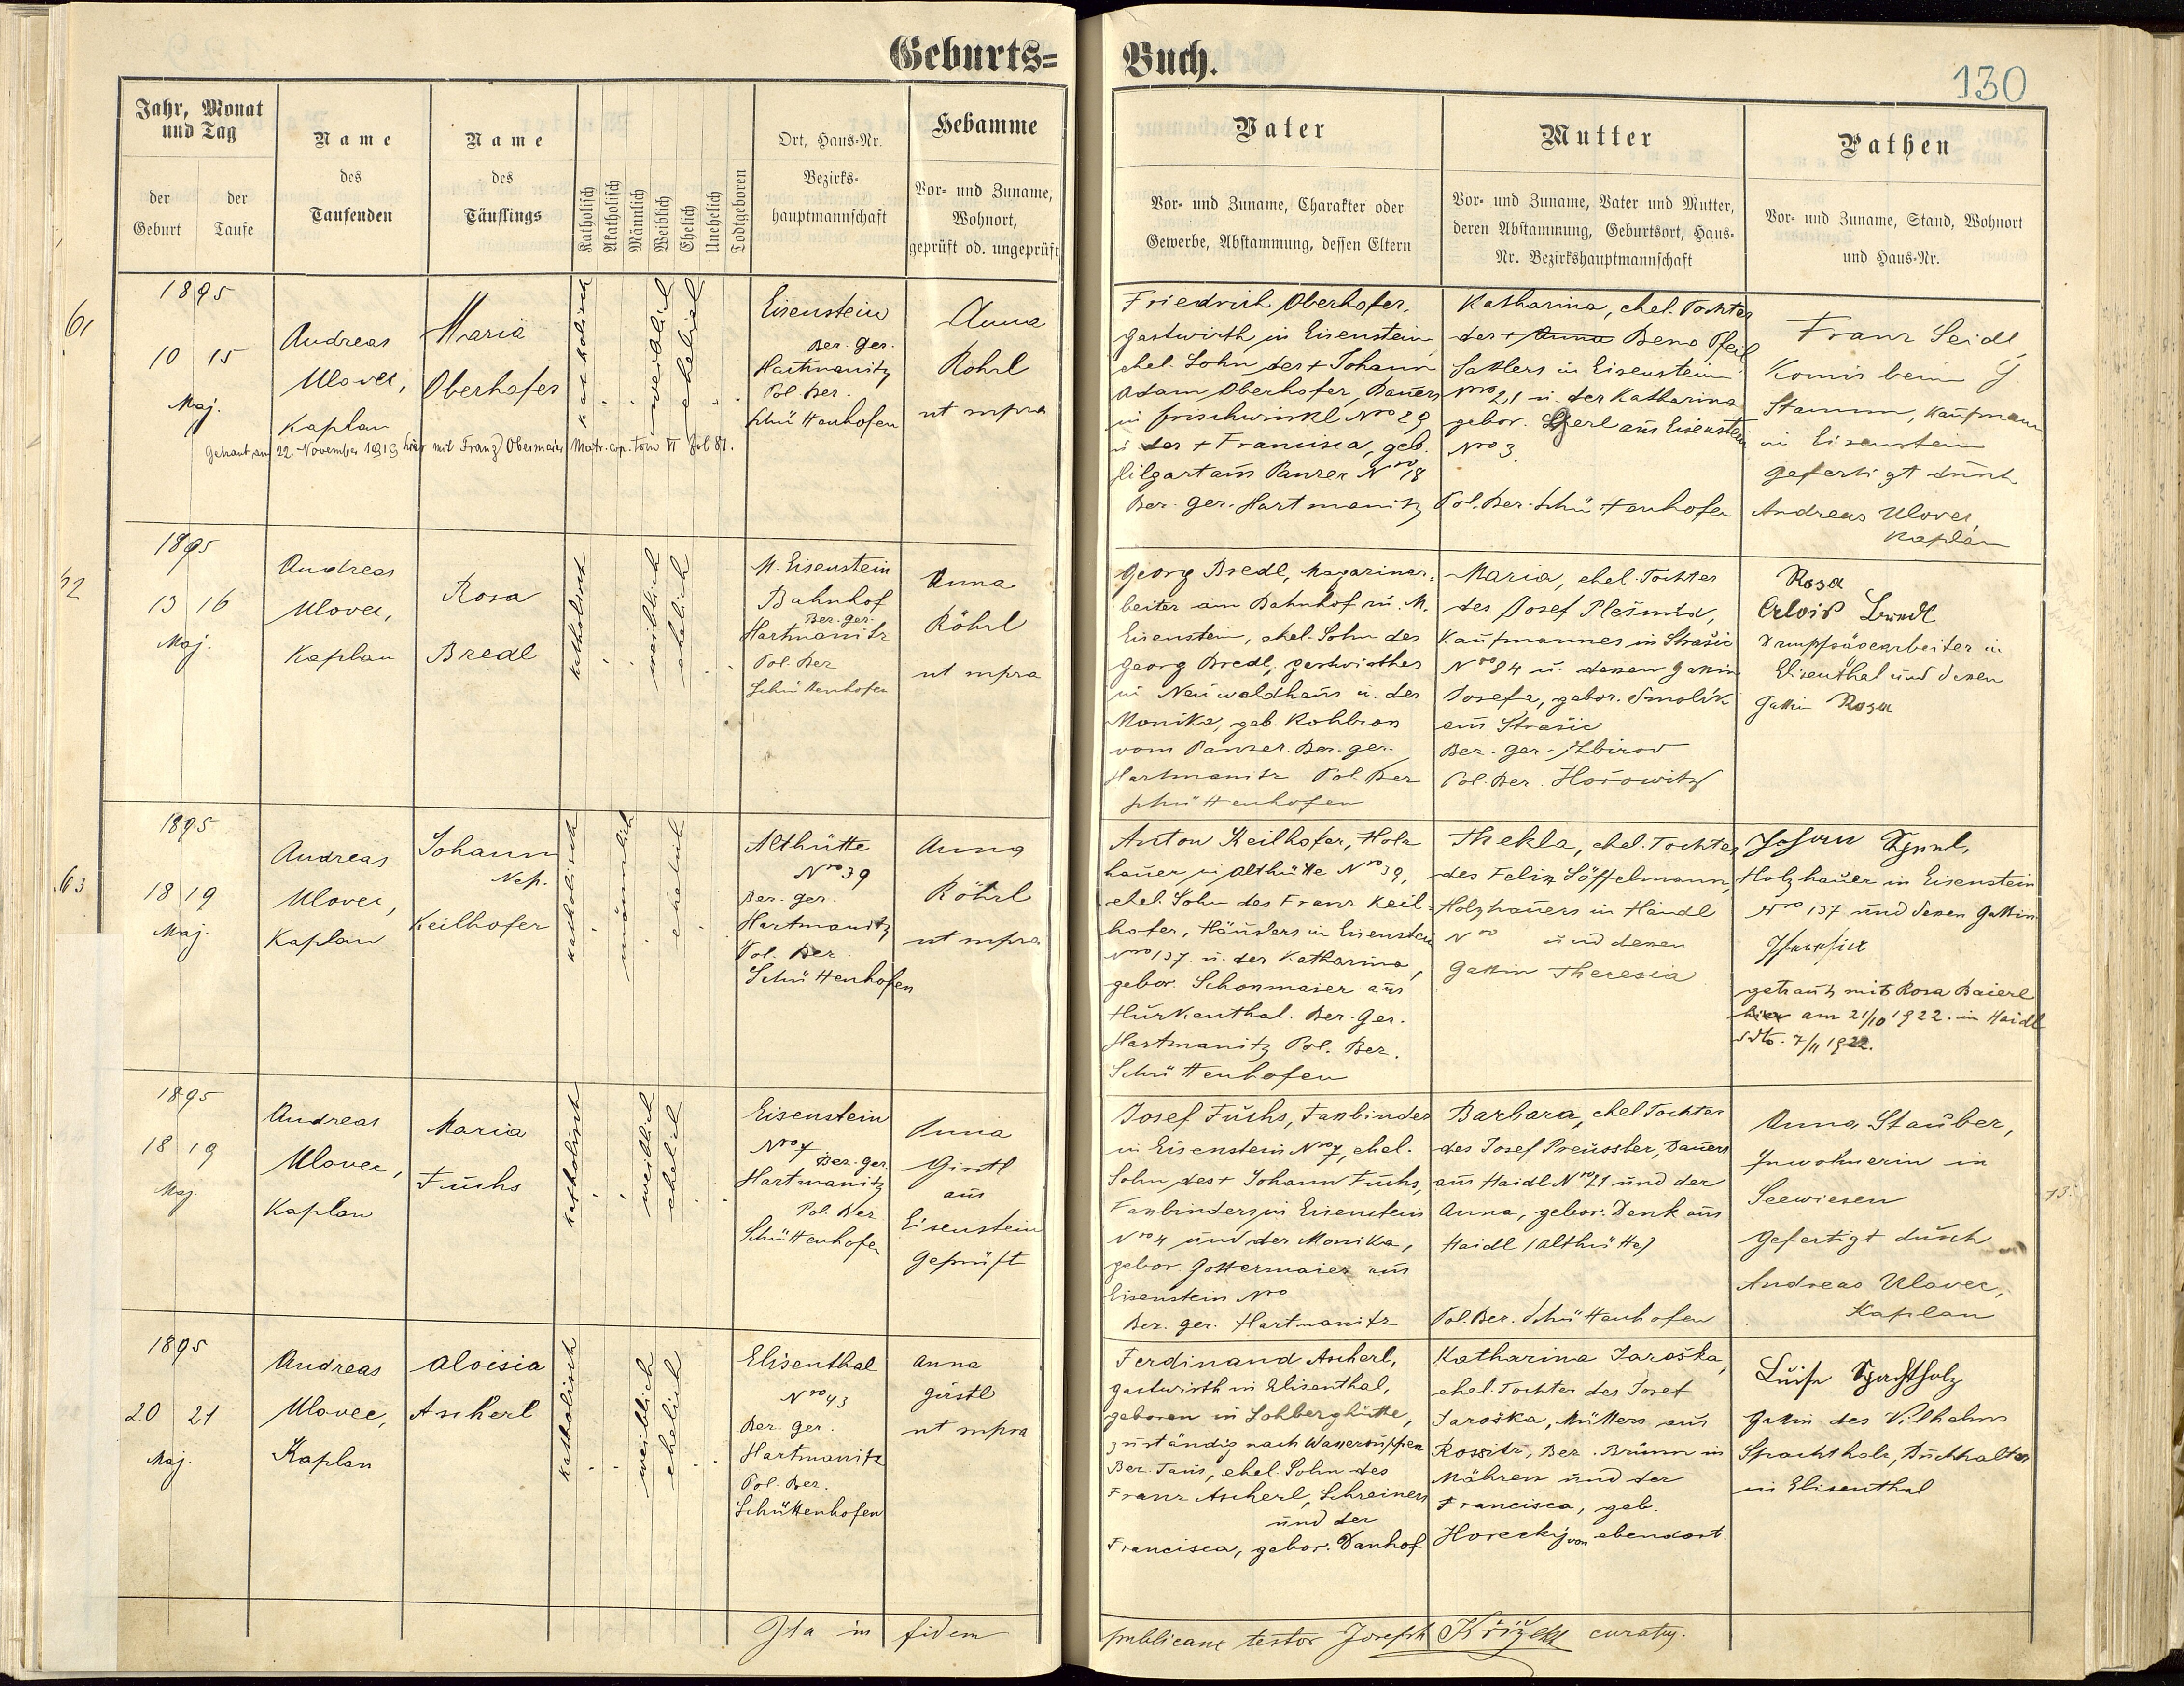 Geburts=
Buch.
130
Jahr, Monat
und Tag
der
Geburt
der
Taufe
Name
des
Taufenden
Name
des
Täuflings
Katholisch
Akatholisch
Männlich
Weiblich
Ehelich
Unehelich
Todtgeboren
Ort, Haus-Nr.
Bezirks-
hauptmannschaft
Hebamme
Vor- und Zuname,
Wohnort,
geprüft od. ungeprüft
Vater
Vor- und Zuname, Charakter oder
Gewerbe, Abstammung, dessen Eltern
Mutter
Vor- und Zuname, Vater und Mutter,
deren Abstammung, Geburtsort, Haus-
Nr. Bezirkshauptmannschaft
Pathen
Vor- und Zuname, Stand, Wohnort
und Haus-Nr.
61
1895
10 15
Maj.
Andreas
Ulovec,
Kaplan
Maria
Oberhofer
katholisch
weiblich
ehelich
Eisenstein
Bez. Ger.
Hartmanitz
Pol. Bez.
Schüttenhofen
Anna
Röhrl
ut supra
Getraut am 22. November 1919 hier mit Franz Obermeier Matr. cop. tom VI fol 81.
Friedrich Oberhofer,
Gastwirth in Eisenstein,
ehel. Sohn des + Johann
Adam Oberhofer, Bauers
in Frischwinkl Nro 29
u. der + Francisca, geb.
Hilgart aus Panzer Nro 18
Bez. Ger. Hartmanitz
Katharina, ehel. Tochter
des + Anna Beno Pfeil
Sattlers in Eisenstein
Nro 21 u. der Katharina
gebor. aus Eisenstein
Nro 3.
Pol. Bez. Schüttenhofen
Franz Seidl,
Komis beim
Stamm, Kaufmann
in Eisenstein
gefertigt durch
Andreas Ulovec,
Kaplan
62
1895
13 16
Maj.
Andreas
Ulovec,
Kaplan
Rosa
Bredl
katholisch
weiblich
ehelich
M. Eisenstein
Bahnhof
Bez. Ger.
Hartmanitz
Pol. Bez
Schüttenhofen
Anna
Röhrl
ut supra
Georg Bredl, Magazinar-
beiter am Bahnhof in M.
Eisenstein, ehel. Sohn des
Georg Bredl, Gastwirthes
in Neuwaldhaus u. der
Monika, geb. Kohbron
vom Panzer. Bez. Ger.
Hartmanitz Pol. Bez
Schüttenhofen
Maria, ehel. Tochter
des Josef Plešmíd,
Kaufmannes in Strašic
Nro 84 u. dessen Gattin
Josefa, gebor. Smolík
aus Strašic
Bez. Ger. Zbirov
Pol. Bez. Hořowitz
Rosa
Alois Bredl
Dampfsägearbeiter in
Elisenthal und dessen
Gattin Rosa
63
1895
18 19
Maj.
Andreas
Ulovec,
Kaplan
Johann
Nep.
Keilhofer
katholisch
männlich
ehelich
Althütte
Nro 39
Bez. Ger.
Hartmanitz
Pol. Bez.
Schüttenhofen
Anna
Röhrl
ut supra
Anton Keilhofer, Holz
hauer in Althütte Nro 39,
ehel. Sohn des Franz Keil-
hofer, Häuslers in Eisenstein
Nro 137 u. der Katharina,
gebor. Schonmaier aus
Hurkenthal. Bez. Ger.
Hartmanitz Pol. Bez.
Schüttenhofen
Thekla, ehel. Tochter
des Felix Löffelmann,
Holzhauers in Haidl
Nro und dessen
Gattin Theresia
Johann
Holzhauer in Eisenstein
Nro 137 und dessen Gattin
Theresia
getraut mit Rosa Baierl
hier am 21/10 1922. in Haidl
dto. 7/11 1922.
1895
18 19
Maj.
Andreas
Ulovec,
Kaplan
Maria
Fuchs
katholisch
weiblich
ehelich
Eisenstein
Nro 7
Bez. Ger.
Hartmanitz
Pol. Bez
Schüttenhofen
Anna
Girstl
aus
Eisenstein
geprüft
Josef Fuchs, Fassbinder
in Eisenstein Nro 7, ehel.
Sohn des + Johann Fuchs,
Fassbinders in Eisenstein
Nro 4 und der Monika,
gebor. Gottermaier aus
Eisenstein Nro
Bez. Ger. Hartmanitz
Barbara, ehel. Tochter
des Josef Preussler, Bauers
aus Haidl Nro 21 und der
Anna, gebor. Denk aus
Haidl (Althütte)
Pol. Bez. Schüttenhofen
Anna Stauber,
Inwohnerin in
Seewiesen
gefertigt durch
Andreas Ulovec,
Kaplan
13.
1895
20 21
Maj.
Andreas
Ulovec,
Kaplan
Aloisia
Ascherl
katholisch
weiblich
ehelich
Elisenthal
Nro 43
Bez. Ger.
Hartmanitz
Pol. Bez.
Schüttenhofen
Anna
Girstl
ut supra
Ferdinand Ascherl,
Gastwirth in Elisenthal,
geboren in Lohberghütte,
zuständig nach Wassersuppen
Bez. Taus, ehel. Sohn des
Franz Ascherl, Schreiners
und der
Francisca, gebor. Danhof
Katharina Jaroška,
ehel. Tochter des Josef
Jaroška, Müllers aus
Rossitz, Bez. Brünn in
Mähren und der
Francisca, geb.
Horecký von ebendort.
Luise Spachtholz
Gattin des Vilhelms
Spachtholz, Buchhalter
in Elisenthal
Ita in fidem
publicam testor Joseph Křížek curatus.